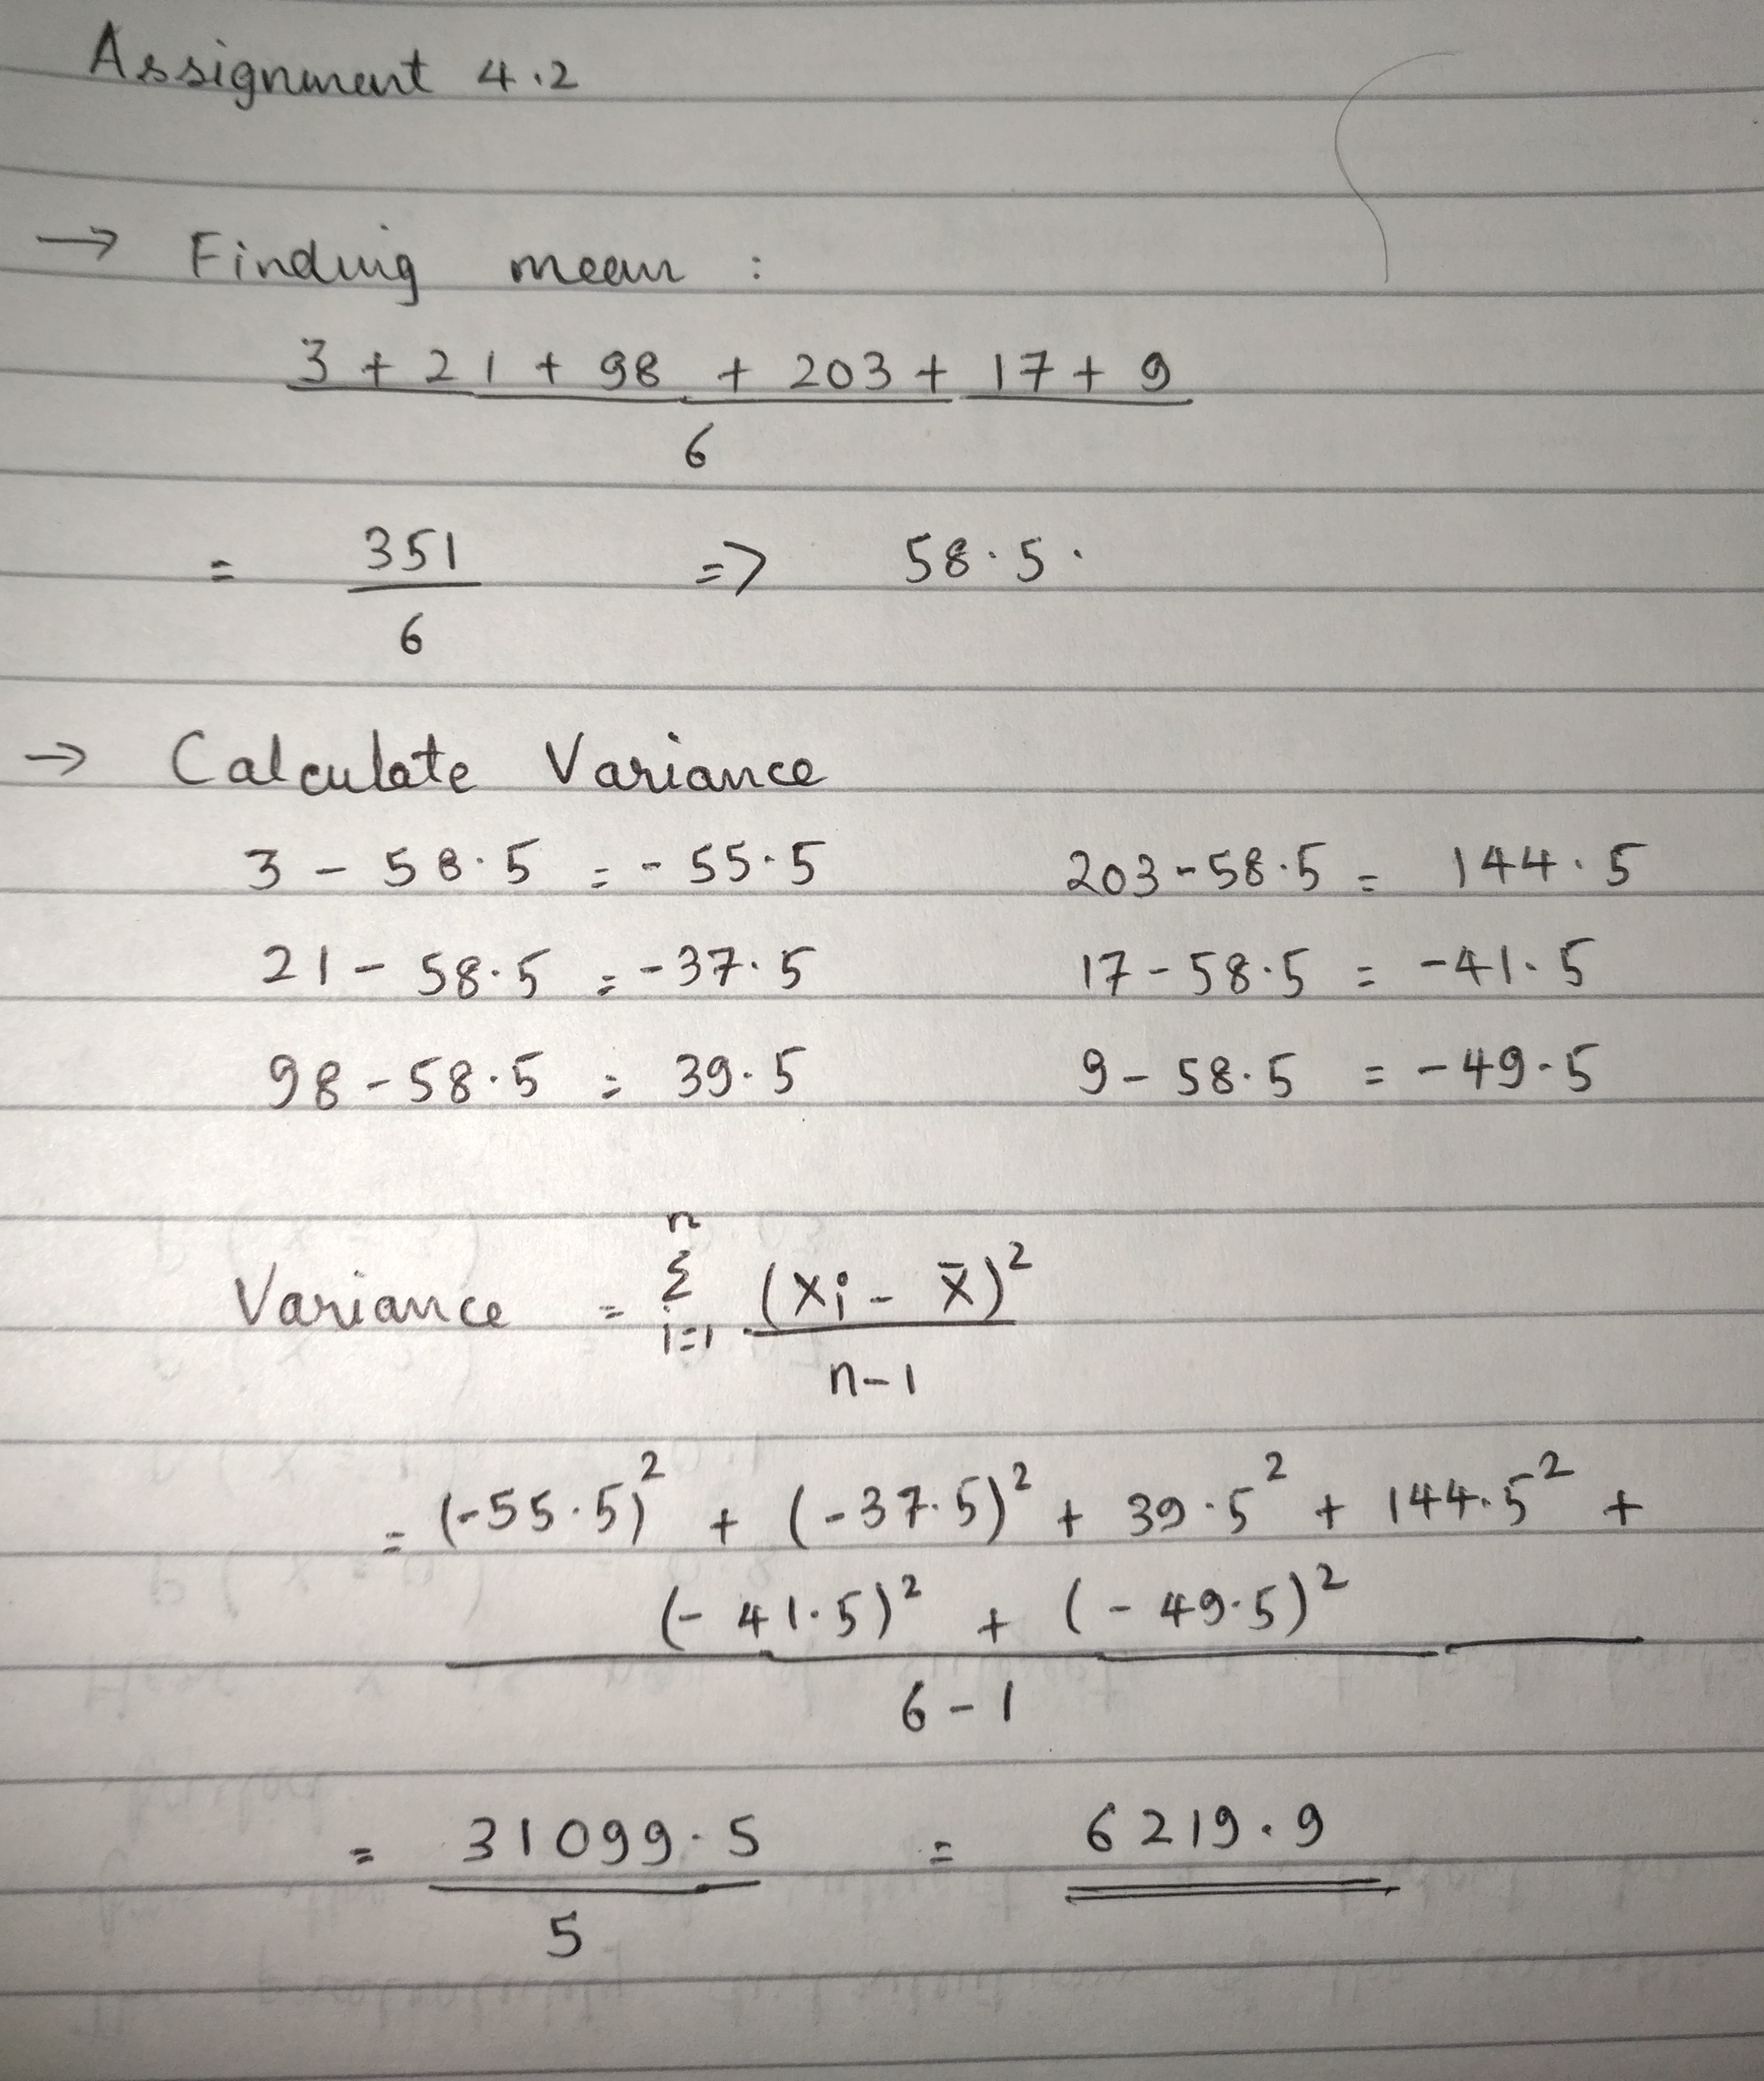 Assignment 4.2
→ Finding mean :
3 + 21 + 98 + 203 + 17 + 9
6
= 351 => 58.5.
6
→ Calculate Variance
3 - 58.5 = -55.5 203-58.5 = 144.5
21 - 58.5 = -37.5 17-58.5 = -41.5
98-58.5 = 39.5 9-58.5 = -49.5
n
Variance = Σ (xi - x̄)²
i=1
n-1
= (-55.5)² + (-37.5)² + 39.5² + 144.5² +
(-41.5)² + (-49.5)²
6-1
= 31099.5 = 6219.9
5